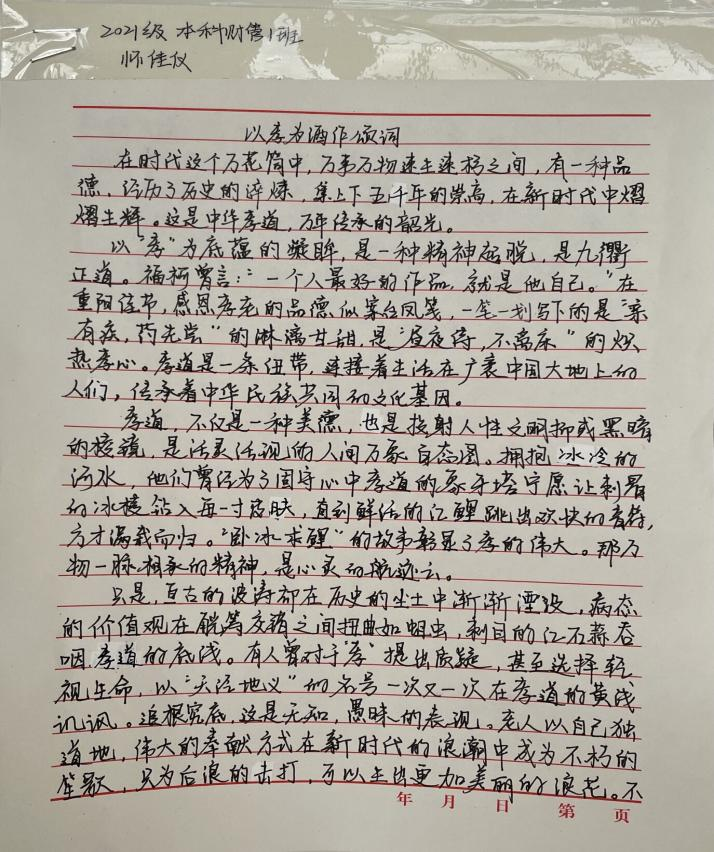 2021级 本科财管1班
怀佳仪
以孝为酒作颂词
在时代这个万花筒中，万事万物速生速朽之间，有一种品
德，经历了历史的淬炼，集上下五千年的崇高，在新时代中熠
熠生辉。这是中华孝道，万年传承的韶光。
以“孝”为底蕴的凝眸，是一种精神超脱，是九衢
正道。福柯曾言：“一个人最好的作品，就是他自己。”在
重阳佳节，感恩孝老的品德似鸾笺凤笺，一笔一划写下的是“亲
有疾，药先尝”的淋漓甘甜，是“昼夜侍，不离床”的炽
热孝心。孝道是一条纽带，连接着生活在广袤中国大地上的
人们，传承着中华民族共同的文化基因。
孝道，不仅是一种美德，也是投射人性之明抑或黑暗
的棱镜，是活灵活现的人间万象百态图。拥抱冰冷的
河水，他们曾经为了固守心中孝道的象牙塔宁愿让刺骨
的冰棱钻入每一寸皮肤，直到鲜活的江鲤跳出欢快的音符，
方才满载而归。“卧冰求鲤”的故事彰显了孝的伟大。那万
物一脉相承的精神，是心灵的航迹云。
只是，亘古的波涛却在历史的尘土中渐渐湮没，病态
的价值观在觥筹交错之间扭曲如蛆虫，刺目的红石蒜吞
咽孝道的底线。有人曾对于“孝”提出质疑，甚至选择轻
视生命，以“天经地义”的名号一次又一次在孝道的黄线
讥讽。追根究底，这是无知，愚昧的表现。老人以自己独
道地，伟大的奉献方式在新时代的浪潮中成为不朽的
笙歌，只为后浪的击打，可以生出更加美丽的浪花。不
年 月 日 第 页